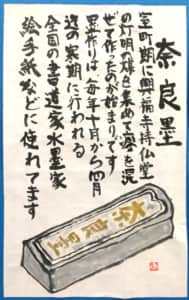 奈良墨
室町期に興福寺持仏堂
の灯明の煤を集めて膠を混
ぜて作ったのが始まりです
墨作りは毎年十月から四月
迄の寒期に行われる
全国の書道家水墨家
絵手紙などに使れてます
奈良墨